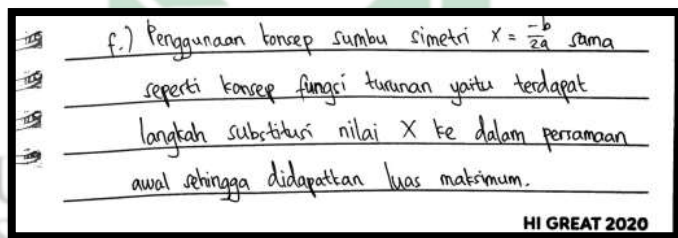 f.) Penggunaan konsep sumbu simetri x = -b/2a sama
seperti konsep fungsi turunan yaitu terdapat
langkah substitusi nilai X ke dalam persamaan
awal sehingga didapatkan luas maksimum.
HI GREAT 2020